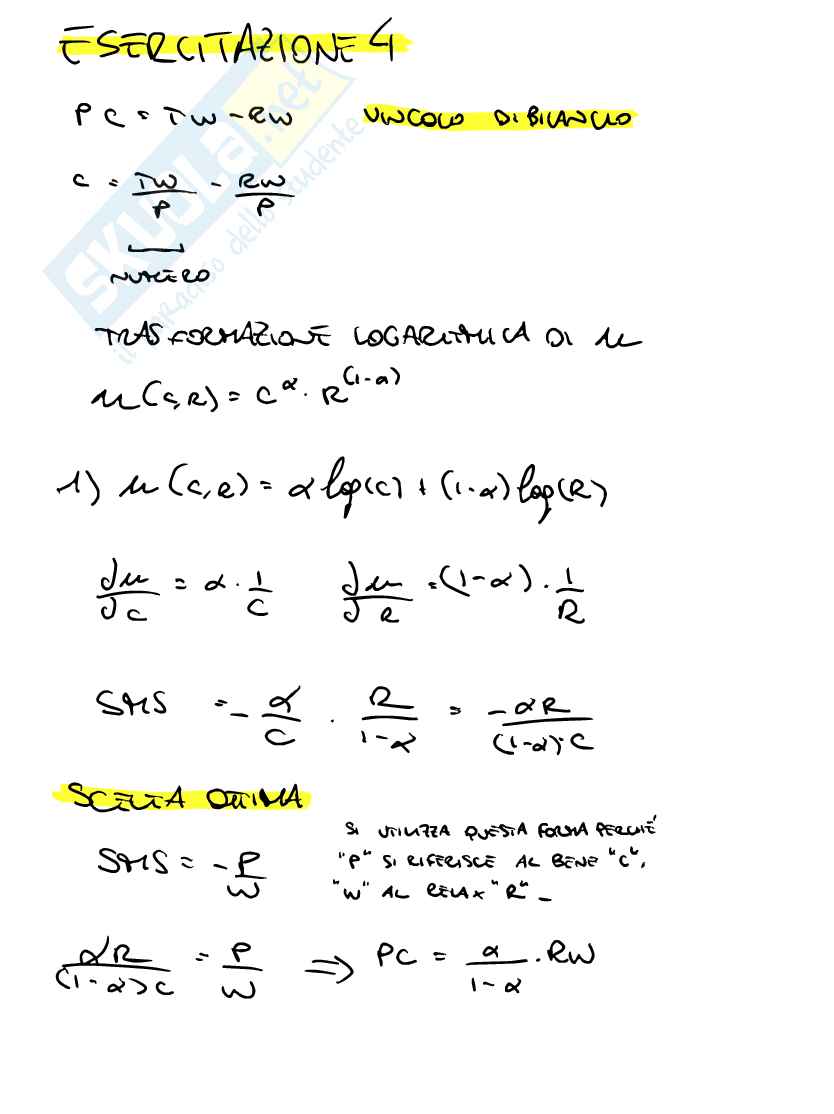 ESERCITAZIONE 4
PC = TW - RW VINCOLO DI BILANCIO
C = TW/P - RW/P
NUMERO
TRASFORMAZIONE LOGARITMICA DI u
u(C,R) = C^α · R^(1-α)
1) u(C,R) = α log(C) + (1-α) log(R)
∂u/∂C = α · 1/C ∂u/∂R = (1-α) · 1/R
SMS = - α/C · R/1-α = -αR/(1-α)·C
SCELTA OTTIMA
SI UTILIZZA QUESTA FORMA PERCHÉ
SMS = - P/W "P" SI RIFERISCE AL BENE "C",
"W" AL RELAX "R" -
αR/(1-α)C = P/W ⇒ PC = α/1-α · RW
SKUOLA.net
il paradiso dello studente